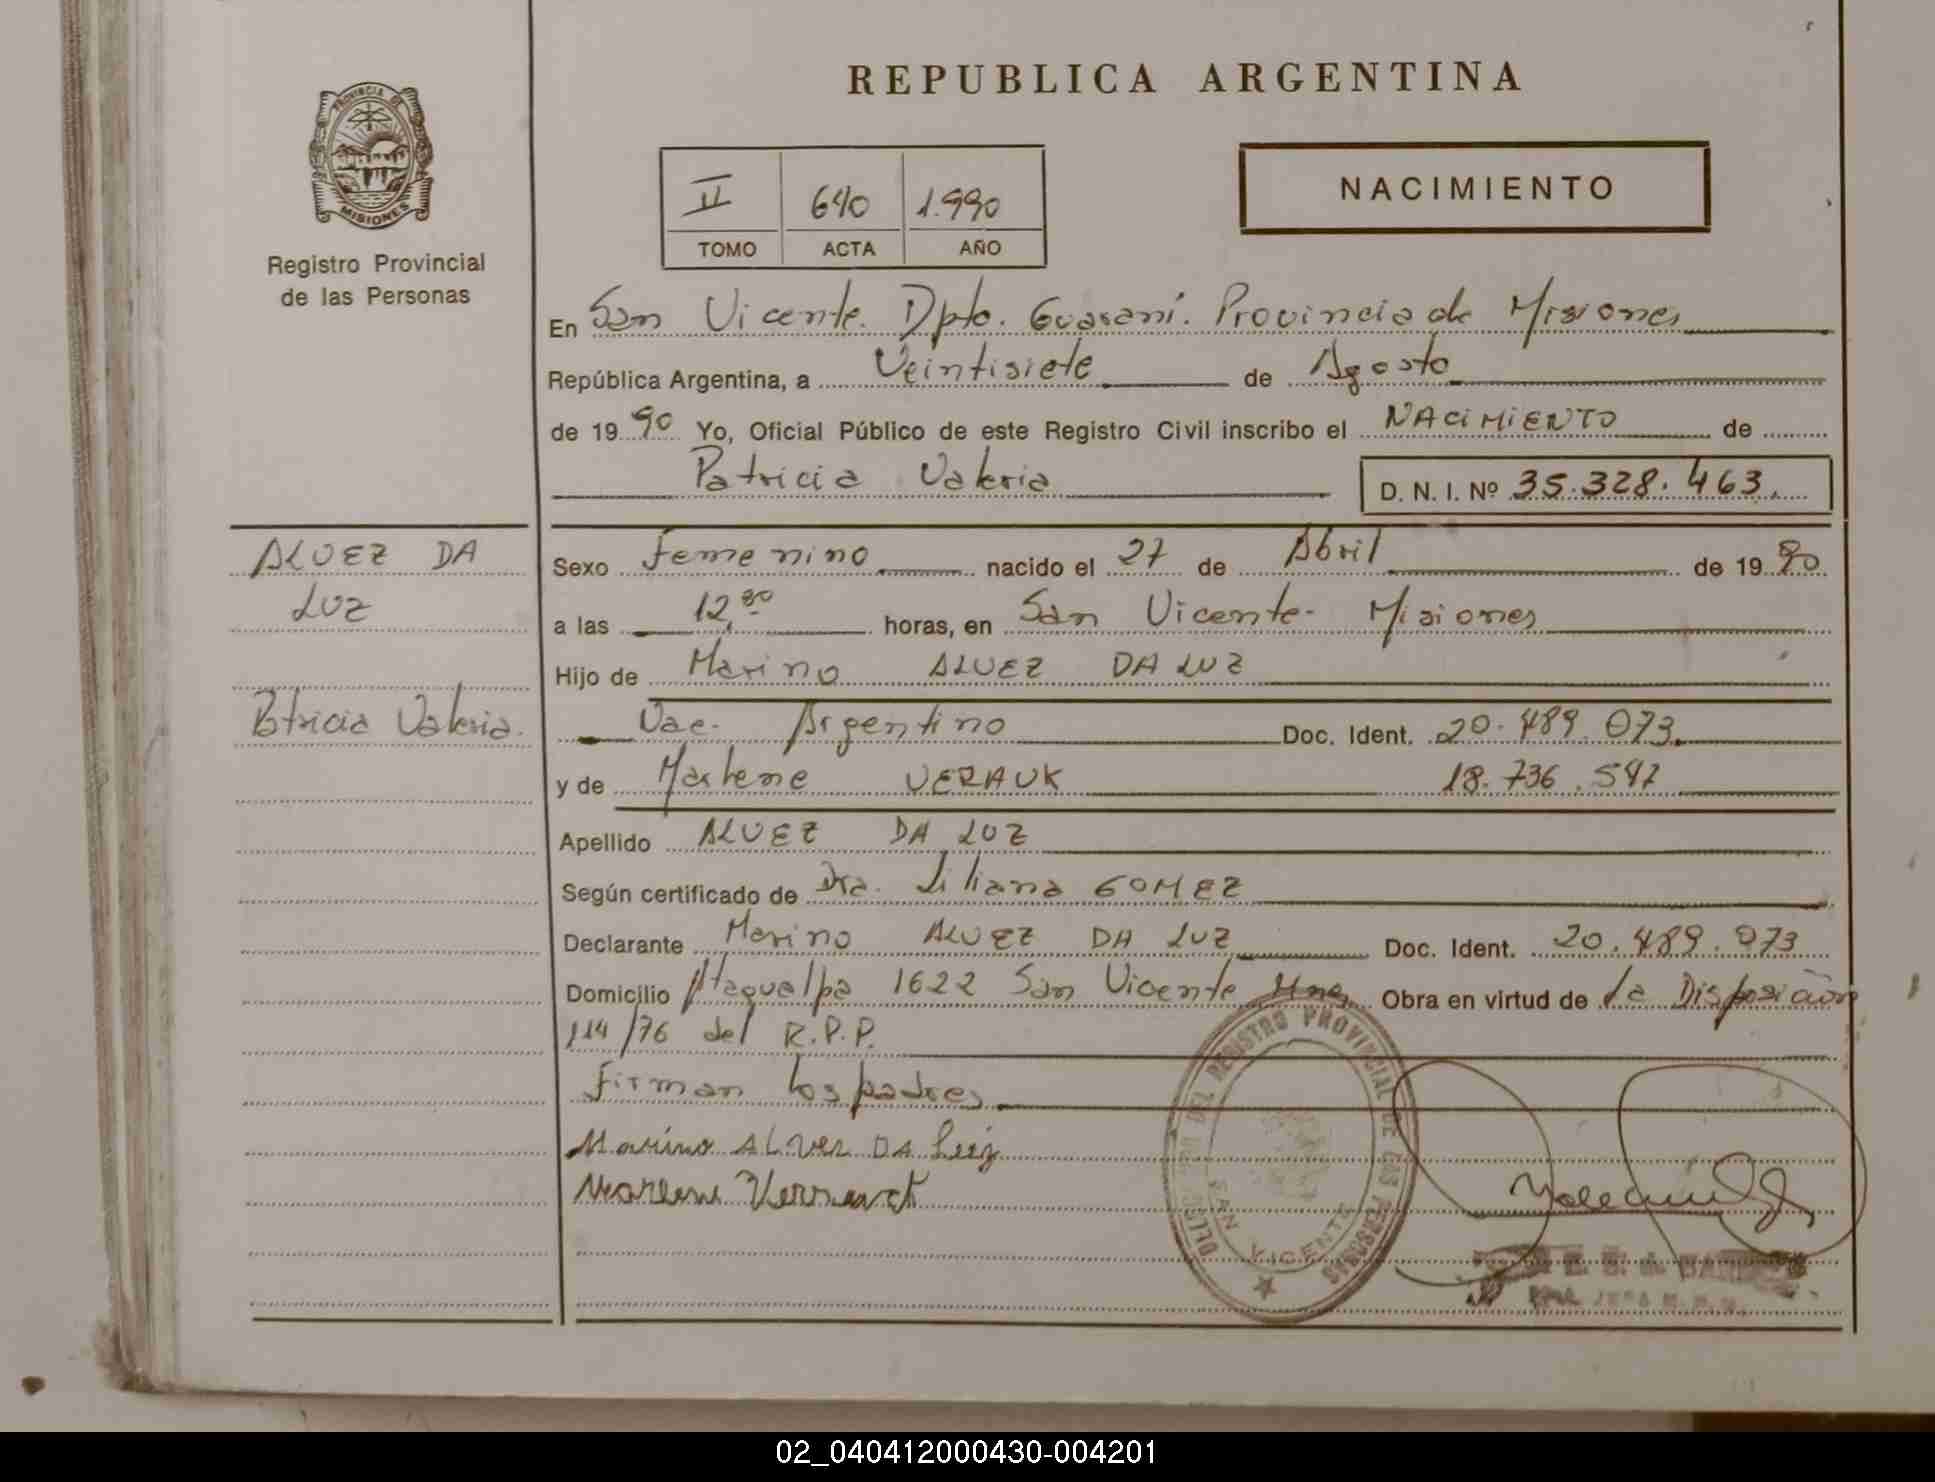 REPUBLICA ARGENTINA
PROVINCIA DE
MISIONES
Registro Provincial
de las Personas
II 640 1.990
TOMO ACTA AÑO
NACIMIENTO
En San Vicente. Dpto. Guaraní. Provincia de Misiones
República Argentina, a Veintisiete de Agosto
de 1990 Yo, Oficial Público de este Registro Civil inscribo el NACIMIENTO de
Patricia Valeria
D. N. I. Nº 35.328.463.
ALVEZ DA
LUZ
Patricia Valeria.
Sexo Femenino nacido el 27 de Abril de 1990
a las 12, horas, en San Vicente- Misiones
Hijo de Marino ALVEZ DA LUZ
Nac. Argentino Doc. Ident. 20.489.073.
y de Marlene VERAUK 18.736.547
Apellido ALVEZ DA LUZ
Según certificado de Dra. Liliana GOMEZ
Declarante Marino ALVEZ DA LUZ Doc. Ident. 20.489.073
Domicilio Atagualpa 1622 San Vicente Mnes Obra en virtud de la Disposición
114/76 del R.P.P.
Firman los padres
Marino ALVEZ DA Luz
DEL REGISTRO PROVINCIAL DE LAS PERSONAS
SAN VICENTE
02_040412000430-004201